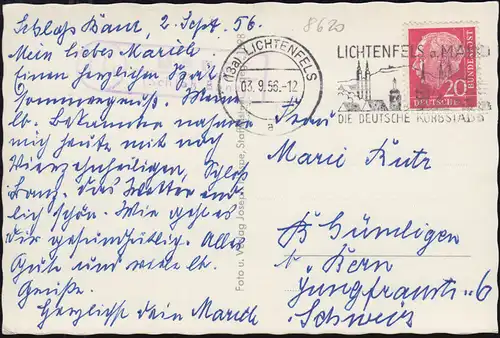 Schloss Banz, 2. Sept. 56.
Mein liebes Mariele
Einen herzlichen
Sommergruß. Meine
lb. Bekannten nahmen
mich heute mit nach
Vierzehnheiligen, Schloß
Banz. Das Wetter end-
lich schön. Wie geht es
dir gesundheitlich. Alles
Gute und viele lb.
Grüße.
Herzlichst dein Mariele
Foto u. Verlag Josef
8620
(13a) LICHTENFELS
03.9.56.-12
a
LICHTENFELS a. MAIN
DIE DEUTSCHE KORBSTADT
DEUTSCHE BUNDESPOST
20
Frau
Marie Kutz
Gümligen
b. Bern
Jungfraustr. 6
Schweiz